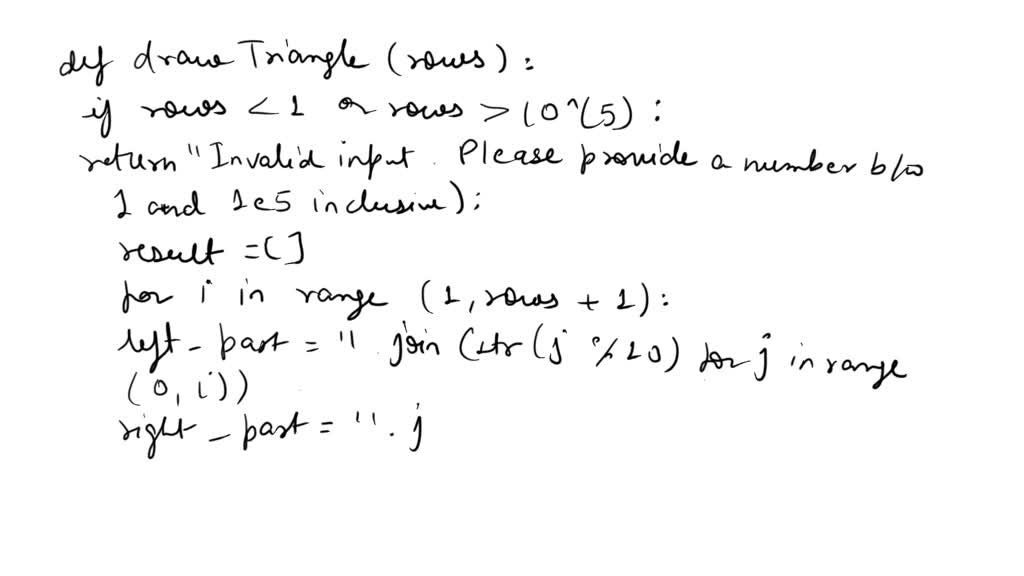 def draw Triangle (rows) :
if rows < 1 or rows > 10^(5) :
return "Invalid input. Please provide a number b/w
1 and 1e5 inclusive);
result = []
for i in range (1, rows + 1) :
left_part = " . join (str (j % 10) for j in range
(0, i))
right_part = " . j